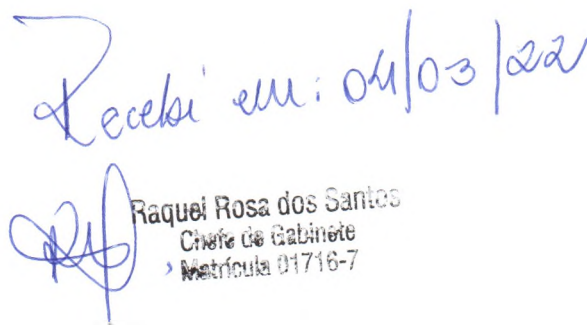 Recebi em: 04/03/22
Raquel Rosa dos Santos
Chefe de Gabinete
Matrícula 01716-7